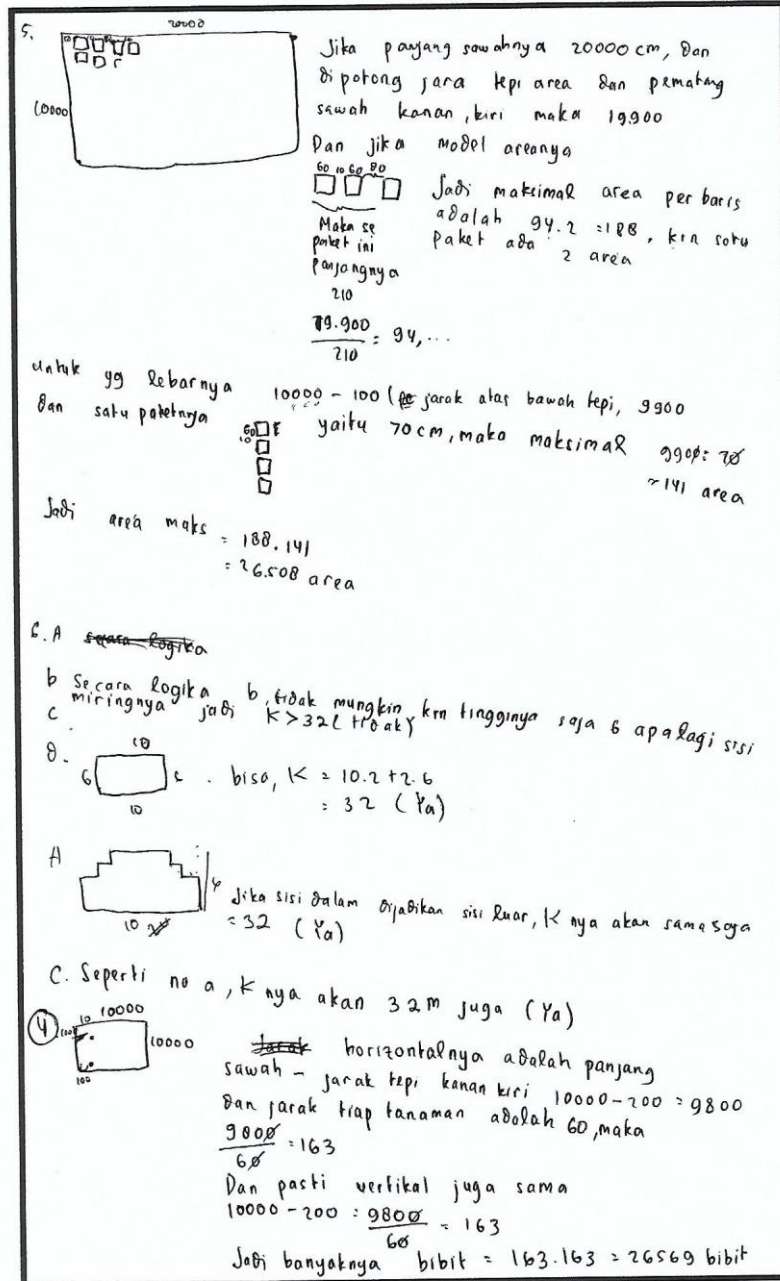 5.
20000
10000
Jika panjang sawahnya 20000 cm, dan
dipotong jara tepi area dan pematang
sawah kanan, kiri maka 19.900
Dan jika model areanya
60 10 60 80
Maka se
paket ini
panjangnya
210
Jadi maksimal area per baris
adalah 94.2 = 188, krn satu
paket ada 2 area
19.900
210
= 94,...
untuk yg lebarnya 10000 - 100 ( jarak atas bawah tepi, 9900
dan satu paketnya
60
10
yaitu 70 cm, maka maksimal 9900 : 70
~ 141 area
Jadi area maks = 188.141
= 26.508 area
6. A secara logika
b Secara logika b, tidak mungkin krn tingginya saja 6 apalagi sisi
miringnya jadi K > 32 ( tidak)
c
d.
10
6
10
. bisa, K = 10.2 + 2.6
= 32 (Ya)
A
10
Jika sisi dalam dijadikan sisi luar, K nya akan sama saja
= 32 (Ya)
C. Seperti no a, K nya akan 32 m juga (Ya)
4
10000
10000
100
horizontalnya adalah panjang
sawah - jarak tepi kanan kiri 10000 - 200 = 9800
dan jarak tiap tanaman adalah 60, maka
9800
60
= 163
Dan pasti vertikal juga sama
10000 - 200 = 9800
60
= 163
Jadi banyaknya bibit = 163.163 = 26569 bibit